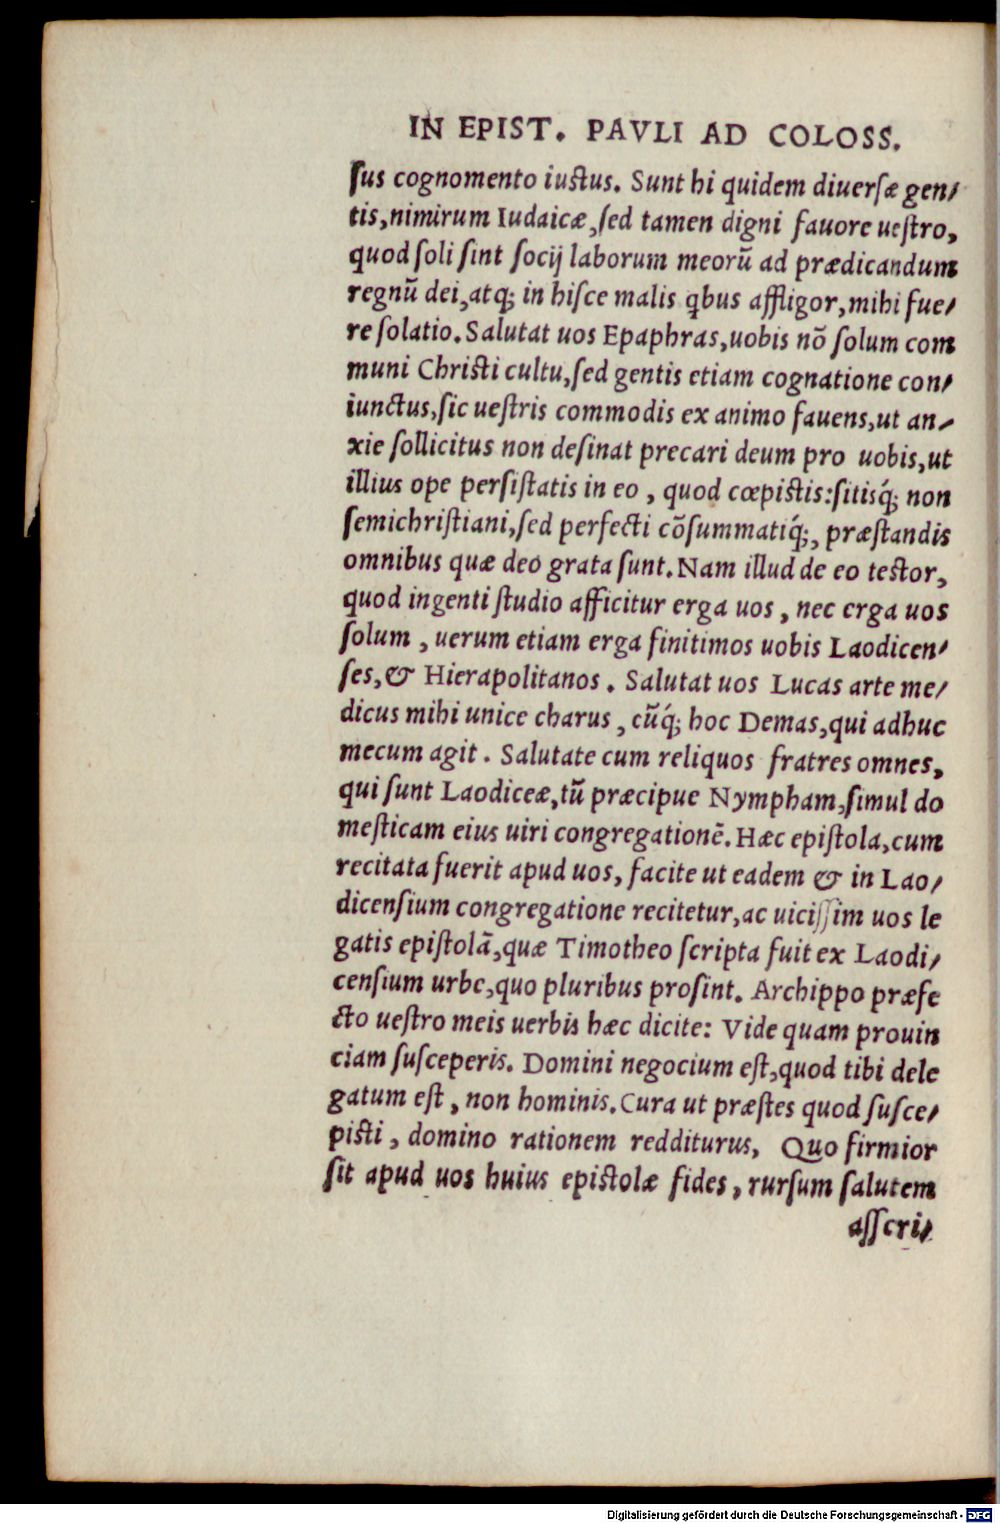 IN EPIST. PAVLI AD COLOSS.
ſus cognomento iuſtus. Sunt hi quidem diuerſæ gen/
tis,nimirum Iudaicæ,ſed tamen digni fauore ueſtro,
quod ſoli ſint ſocij laborum meorū ad prædicandum
regnū dei,atq; in hiſce malis qbus affligor,mihi fue/
re ſolatio. Salutat uos Epaphras,uobis nō ſolum com
muni Chriſti cultu,ſed gentis etiam cognatione con/
iunctus,ſic ueſtris commodis ex animo fauens,ut an/
xie ſollicitus non deſinat precari deum pro uobis,ut
illius ope perſiſtatis in eo , quod cœpiſtis:ſitisq́; non
ſemichriſtiani,ſed perfecti cōſummatiq́;, præſtandis
omnibus quæ deo grata ſunt. Nam illud de eo teſtor,
quod ingenti ſtudio afficitur erga uos , nec erga uos
ſolum , uerum etiam erga finitimos uobis Laodicen/
ſes,& Hierapolitanos . Salutat uos Lucas arte me/
dicus mihi unice charus , cūq́; hoc Demas,qui adhuc
mecum agit . Salutate cum reliquos fratres omnes,
qui ſunt Laodiceæ,tū præcipue Nympham,ſimul do
meſticam eius uiri congregationē. Hæc epiſtola,cum
recitata fuerit apud uos, facite ut eadem & in Lao/
dicenſium congregatione recitetur,ac uiciſſim uos le
gatis epiſtolā,quæ Timotheo ſcripta fuit ex Laodi/
cenſium urbe,quo pluribus proſint. Archippo præfe
cto ueſtro meis uerbis hæc dicite: Vide quam prouin
ciam ſuſceperis. Domini negocium eſt,quod tibi dele
gatum eſt , non hominis. Cura ut præſtes quod ſuſce/
piſti , domino rationem redditurus, Quo firmior
ſit apud uos huius epiſtolæ fides , rurſum ſalutem
aſſcri/
Digitalisierung gefördert durch die Deutsche Forschungsgemeinschaft - DFG